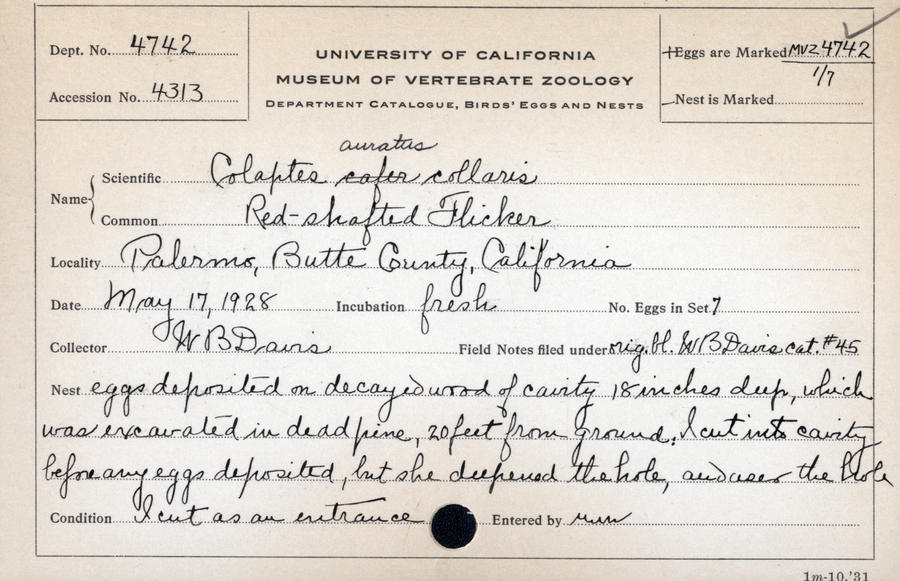 Dept. No. 4742
Accession No. 4313
UNIVERSITY OF CALIFORNIA
MUSEUM OF VERTEBRATE ZOOLOGY
DEPARTMENT CATALOGUE, BIRDS' EGGS AND NESTS
Eggs are Marked MVZ 4742
1/7
Nest is Marked
auratus
Name Scientific Colaptes cafer collaris
Common Red-shafted Flicker
Locality Palermo, Butte County, California
Date May 17, 1928 Incubation fresh No. Eggs in Set 7
Collector W B Davis Field Notes filed under orig. bl. W B Davis cat. #45
Nest eggs deposited on decayed wood of cavity 18 inches deep, which
was excavated in dead pine, 20 feet from ground. I cut into cavity
before any eggs deposited, but she deepened the hole, and uses the hole
Condition I cut as an entrance Entered by
1m-10,'31